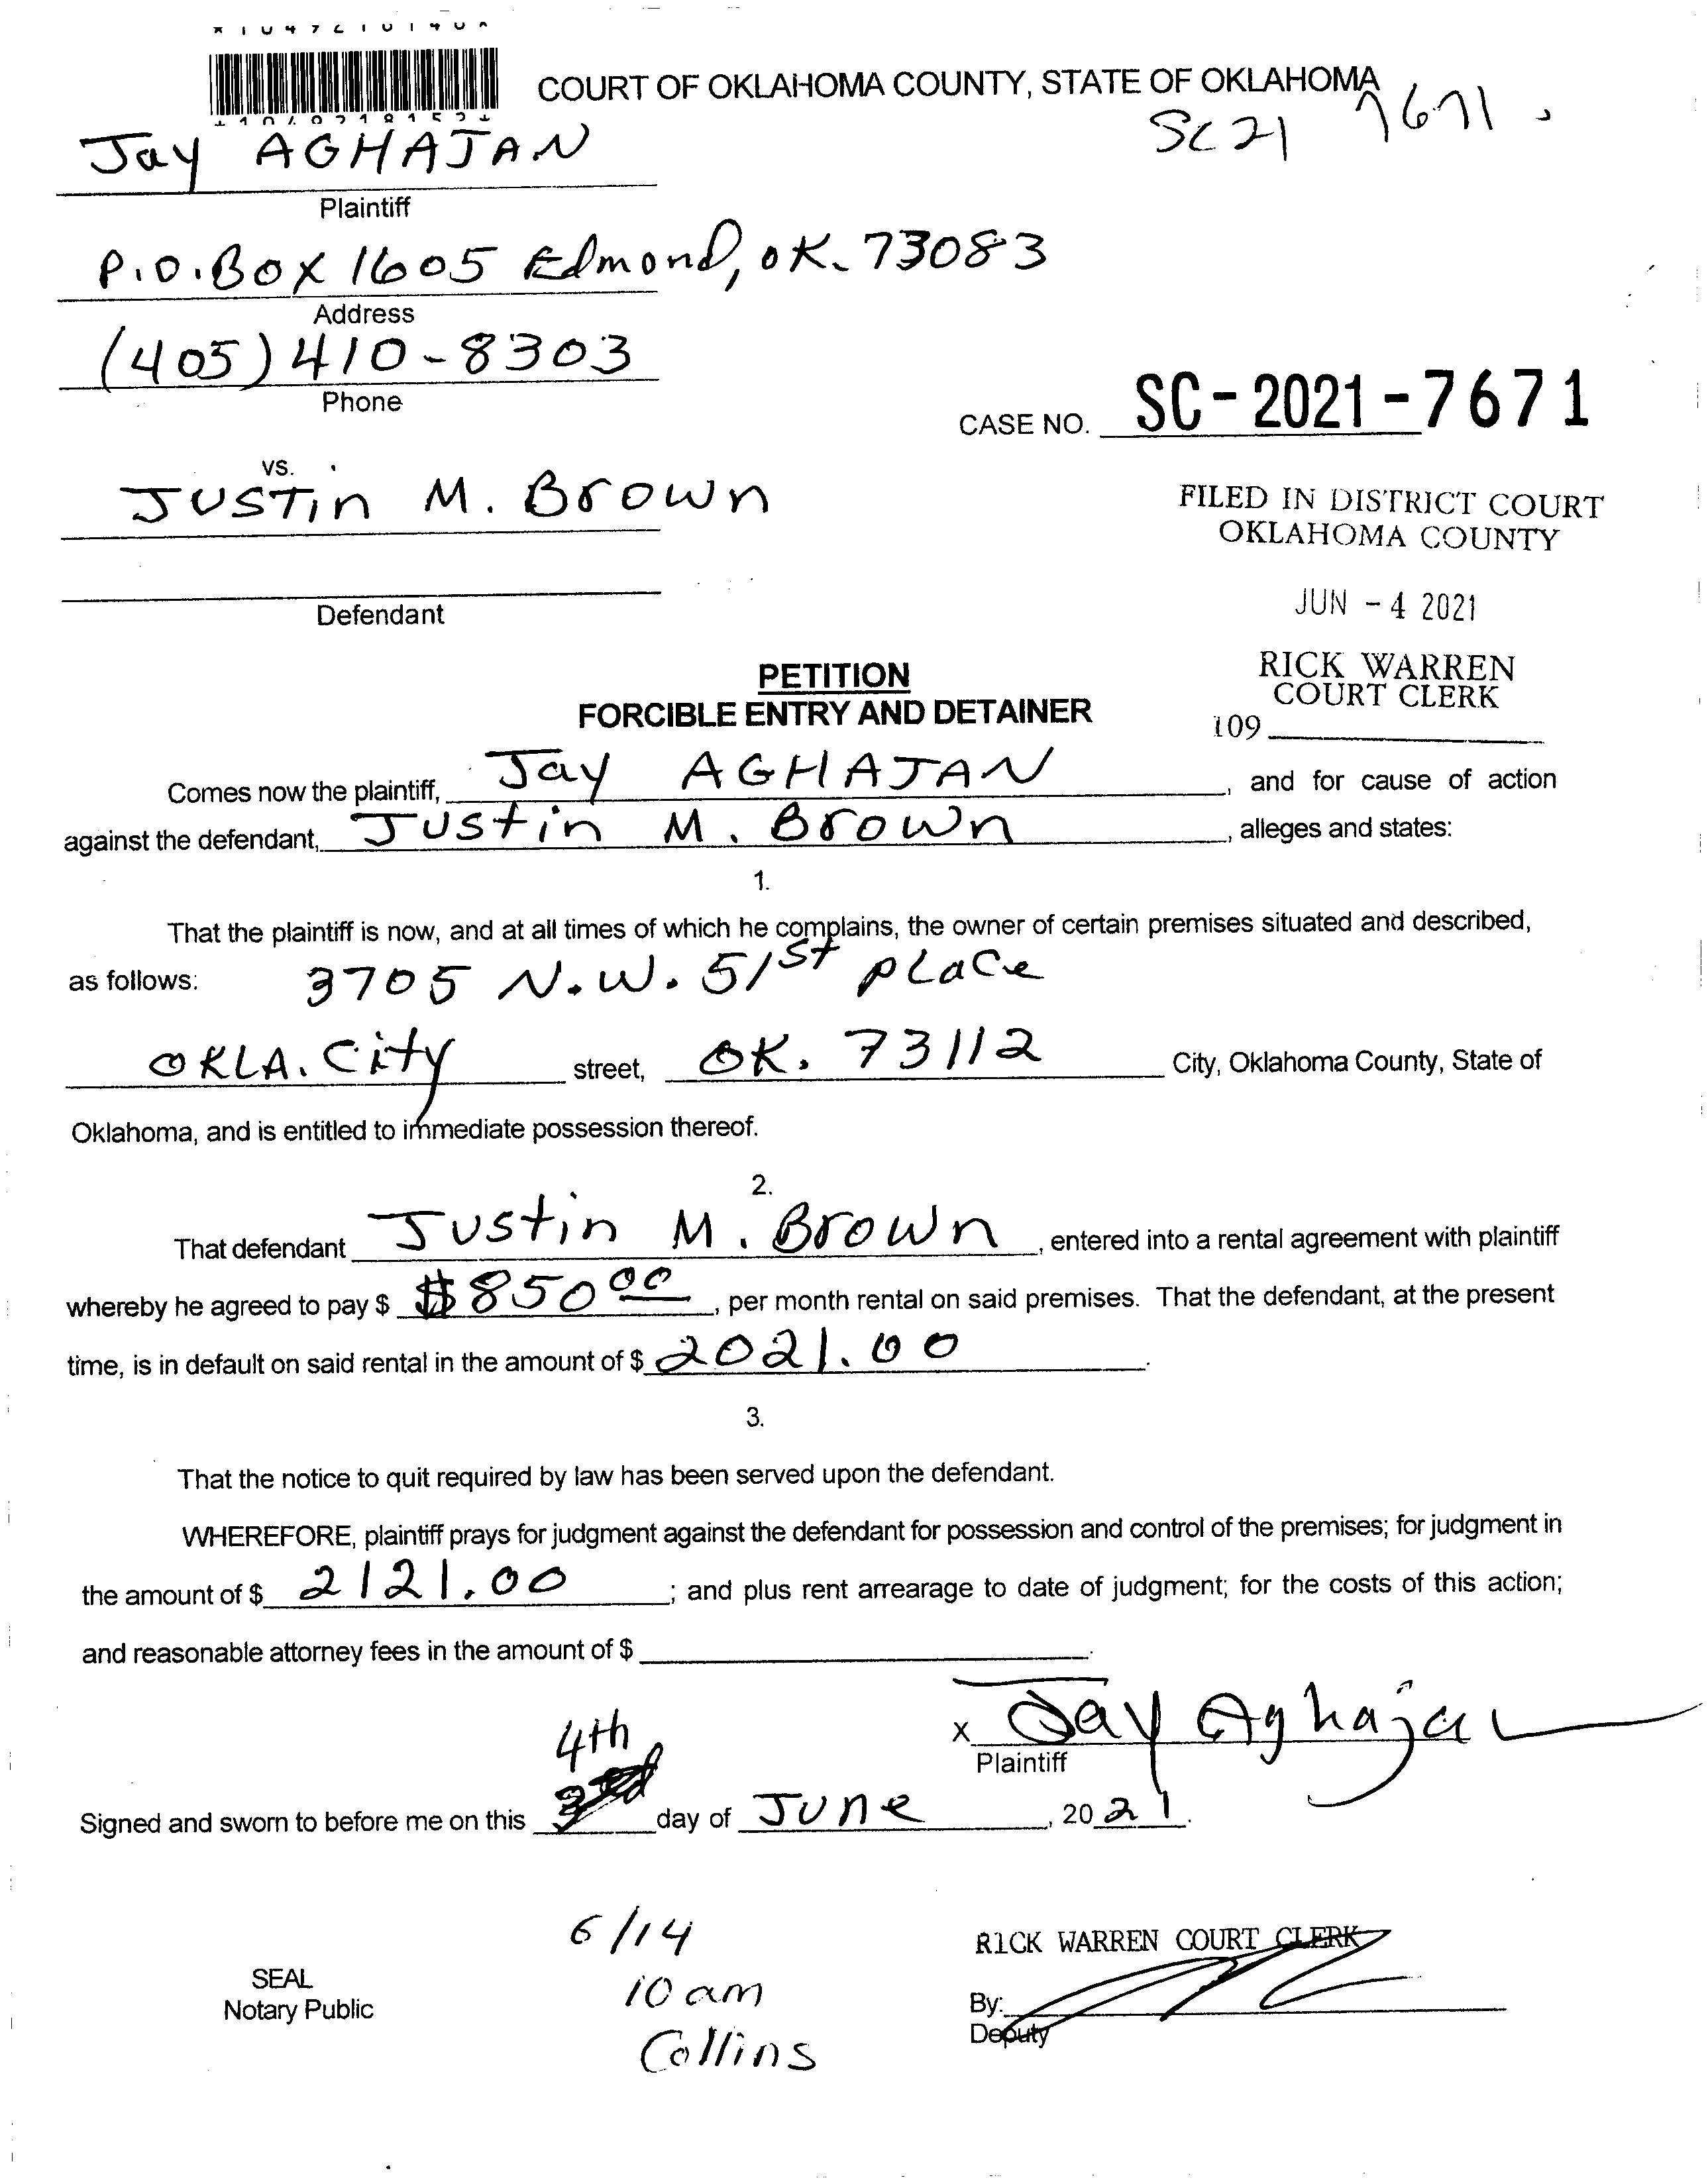 COURT OF OKLAHOMA COUNTY, STATE OF OKLAHOMA
SC21 7671
Jay AGHAJAN
Plaintiff
P.O.BOX 1605 Edmond, OK. 73083
Address
(405) 410-8303
Phone
CASE NO. SC-2021-7671
vs.
JUSTin M. Brown
FILED IN DISTRICT COURT
OKLAHOMA COUNTY
Defendant
JUN - 4 2021
RICK WARREN
COURT CLERK
109
PETITION
FORCIBLE ENTRY AND DETAINER
Comes now the plaintiff, Jay AGHAJAN, and for cause of action
against the defendant, Justin M. Brown, alleges and states:
1.
That the plaintiff is now, and at all times of which he complains, the owner of certain premises situated and described,
as follows: 3705 N.W. 51st place
OKLA. City street, OK. 73112 City, Oklahoma County, State of
Oklahoma, and is entitled to immediate possession thereof.
2.
That defendant Justin M. Brown, entered into a rental agreement with plaintiff
whereby he agreed to pay $ $850 00, per month rental on said premises. That the defendant, at the present
time, is in default on said rental in the amount of $ 2021.00.
3.
That the notice to quit required by law has been served upon the defendant.
WHEREFORE, plaintiff prays for judgment against the defendant for possession and control of the premises; for judgment in
the amount of $ 2121.00; and plus rent arrearage to date of judgment; for the costs of this action;
and reasonable attorney fees in the amount of $ .
X Jay Aghajan
Plaintiff
4th
Signed and sworn to before me on this 3rd day of June, 2021.
6/14
10 am
Collins
SEAL
Notary Public
RICK WARREN COURT CLERK
By:
Deputy